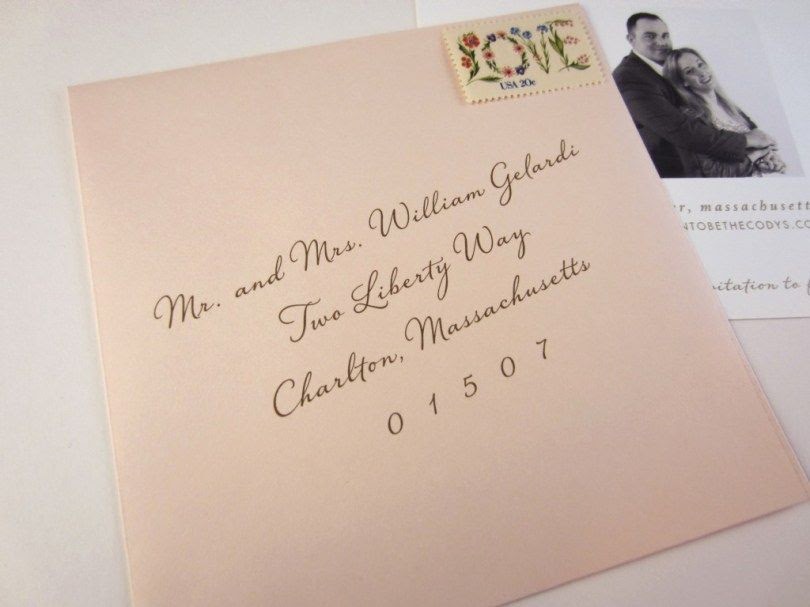 LOVE
USA 20c
Mr. and Mrs. William Gelardi
Two Liberty Way
Charlton, Massachusetts
0 1 5 0 7
massachusett
NTOBETHECODYS.CO
to